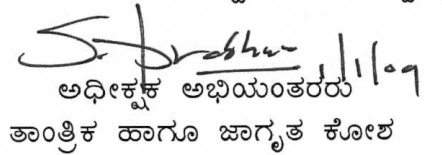 1/1/09
ಅಧೀಕ್ಷಕ ಅಭಿಯಂತರರು
ತಾಂತ್ರಿಕ ಹಾಗೂ ಜಾಗೃತ ಕೋಶ